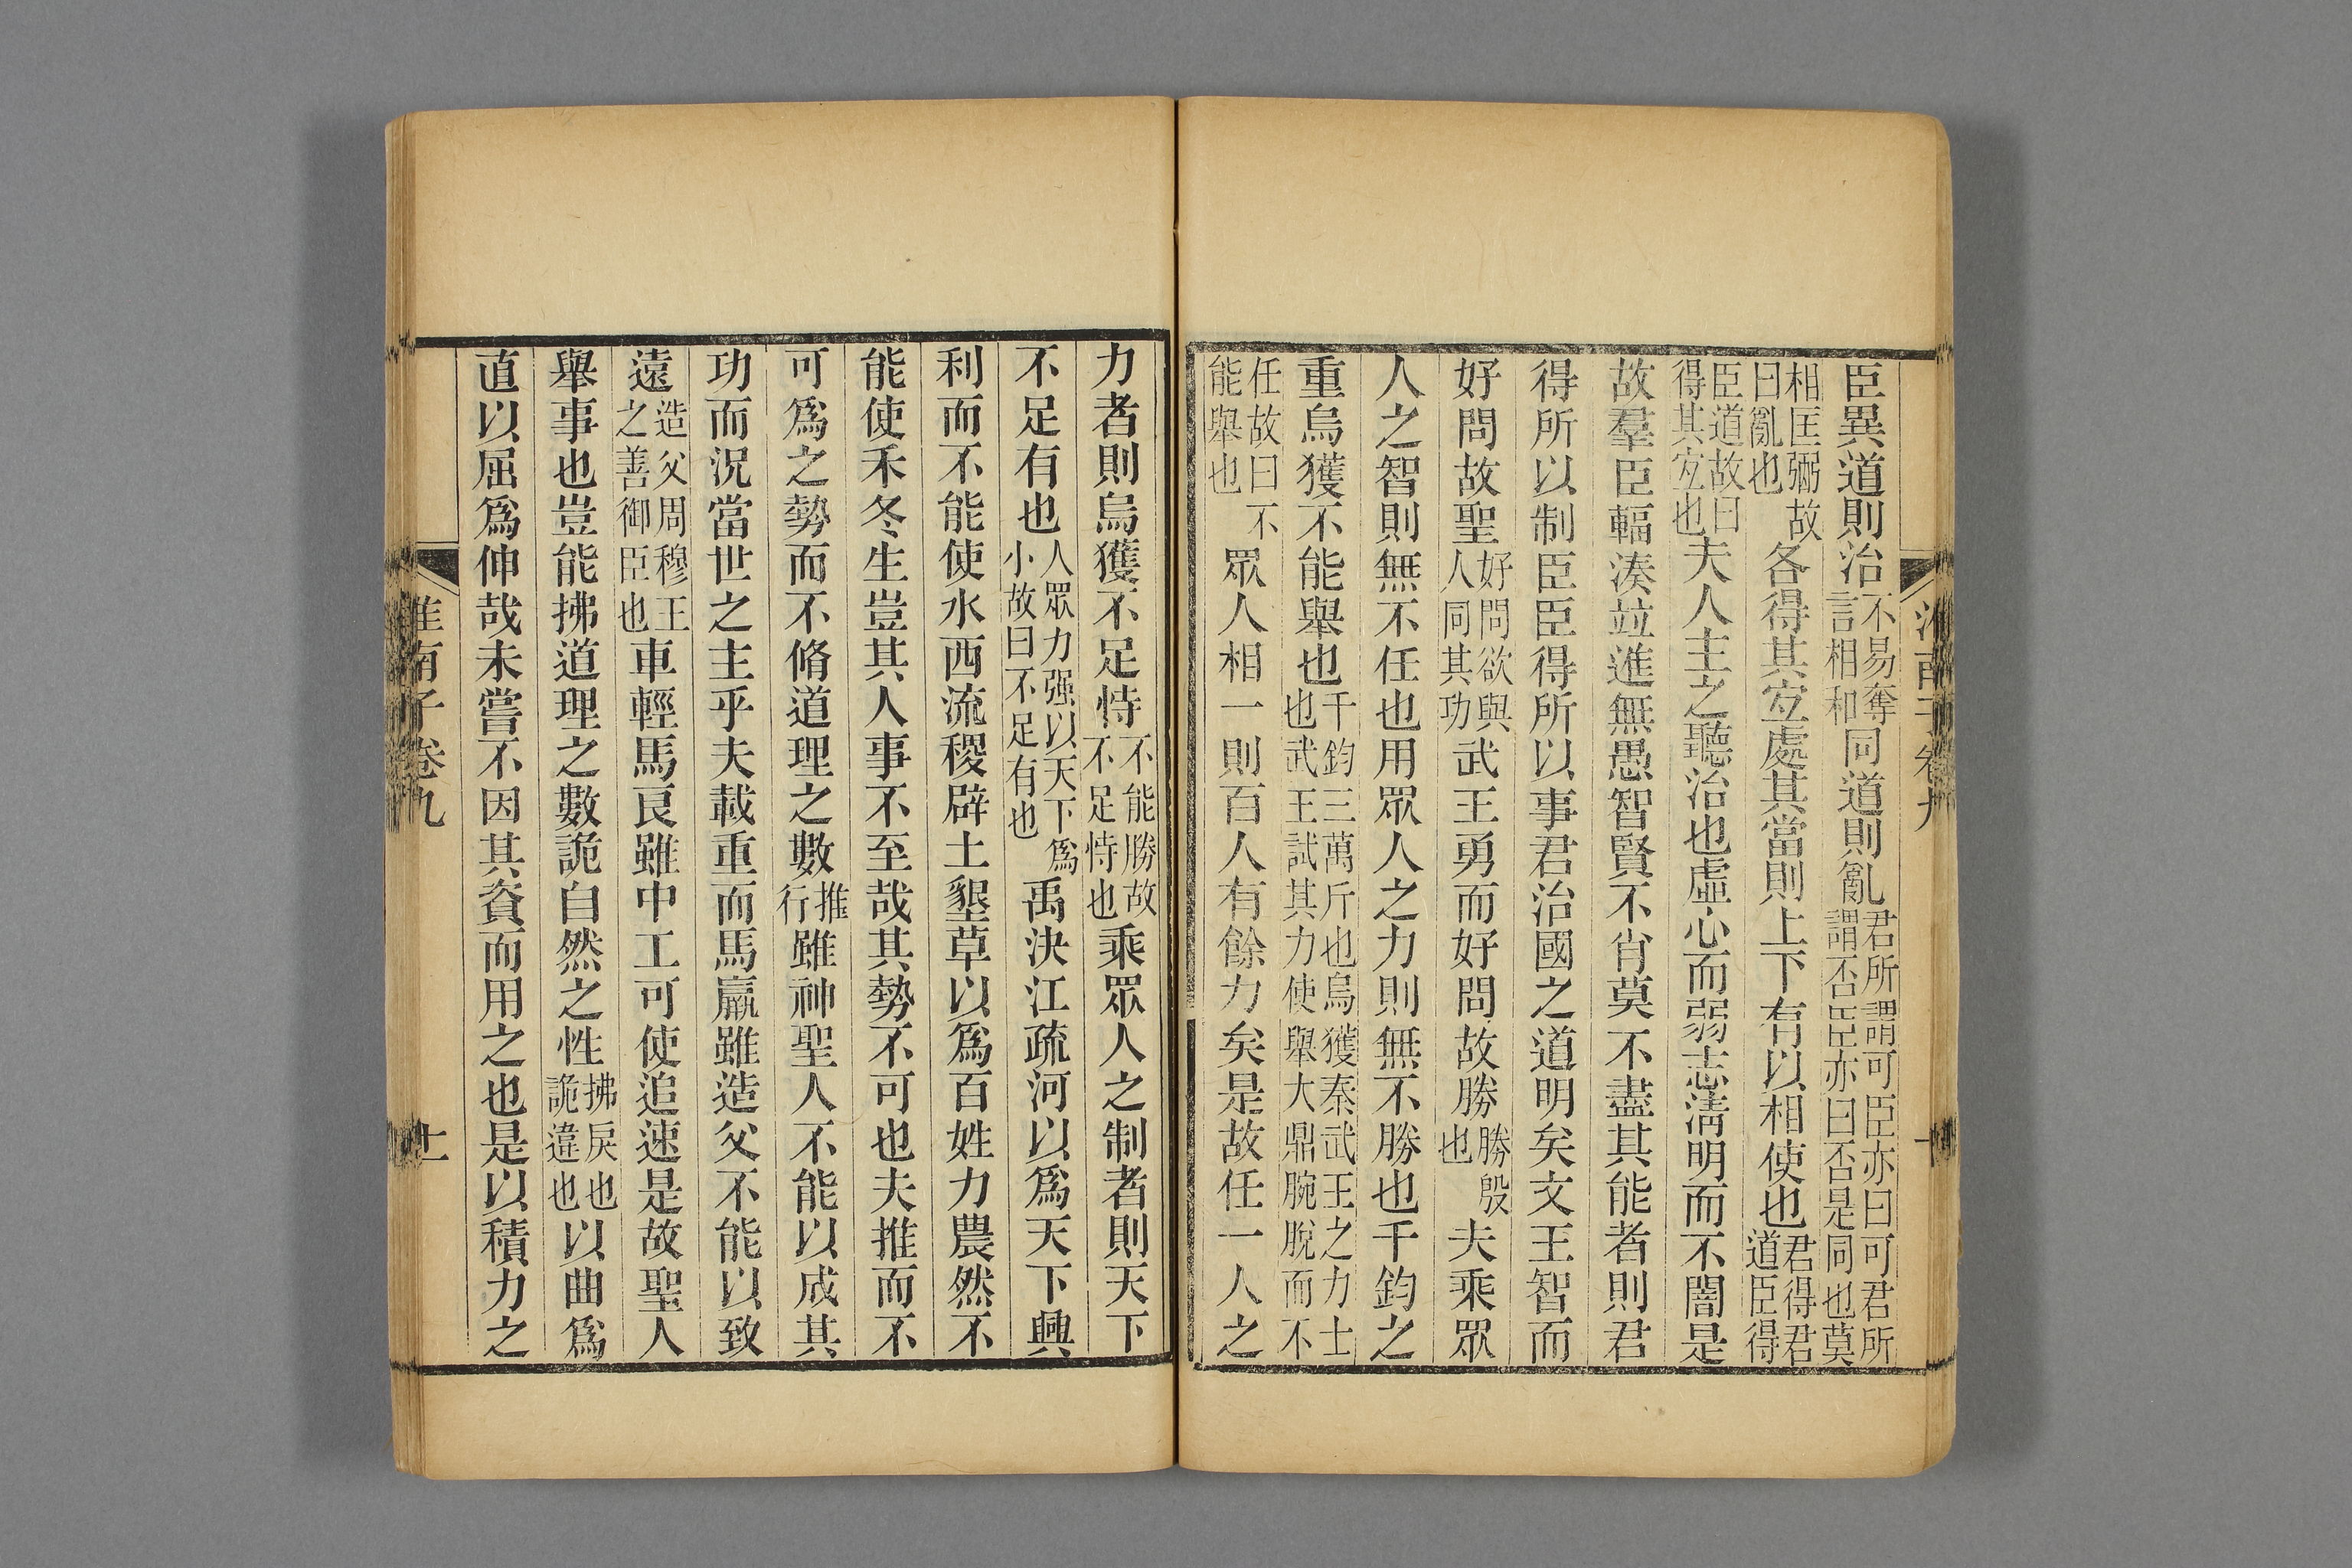 臣異道則治不易奪言相和同道則亂君所謂可臣亦曰可君所謂否臣亦曰否是同也莫
相匡弼故曰亂也各得其宐處其當則上下有以相使也君得君道臣得
臣道故曰得其宐也夫人主之聽治也虛心而弱志淸明而不闇是
故羣臣輻湊竝進無愚智賢不肖莫不盡其能者則君
得所以制臣臣得所以事君治國之道明矣文王智而
好問故聖好問欲與人同其功武王勇而好問故勝勝殷也夫乘眾
人之智則無不任也用眾人之力則無不勝也千鈞之
重烏獲不能舉也千鈞三萬斤也烏獲秦武王之力士也武王試其力使舉大鼎腕脫而不
任故曰不能舉也眾人相一則百人有餘力矣是故任一人之
力者則烏獲不足恃不能勝故不足恃也乘眾人之制者則天下
不足有也人眾力强以天下爲小故曰不足有也禹決江疏河以爲天下興
利而不能使水西流稷辟土墾草以爲百姓力農然不
能使禾冬生豈其人事不至哉其勢不可也夫推而不
可爲之勢而不脩道理之數推行雖神聖人不能以成其
功而況當世之主乎夫載重而馬羸雖造父不能以致
遠造父周穆王之善御臣也車輕馬良雖中工可使追速是故聖人
舉事也豈能拂道理之數詭自然之性拂戾也詭違也以曲爲
直以屈爲伸哉未嘗不因其資而用之也是以積力之
淮南子卷九
十一